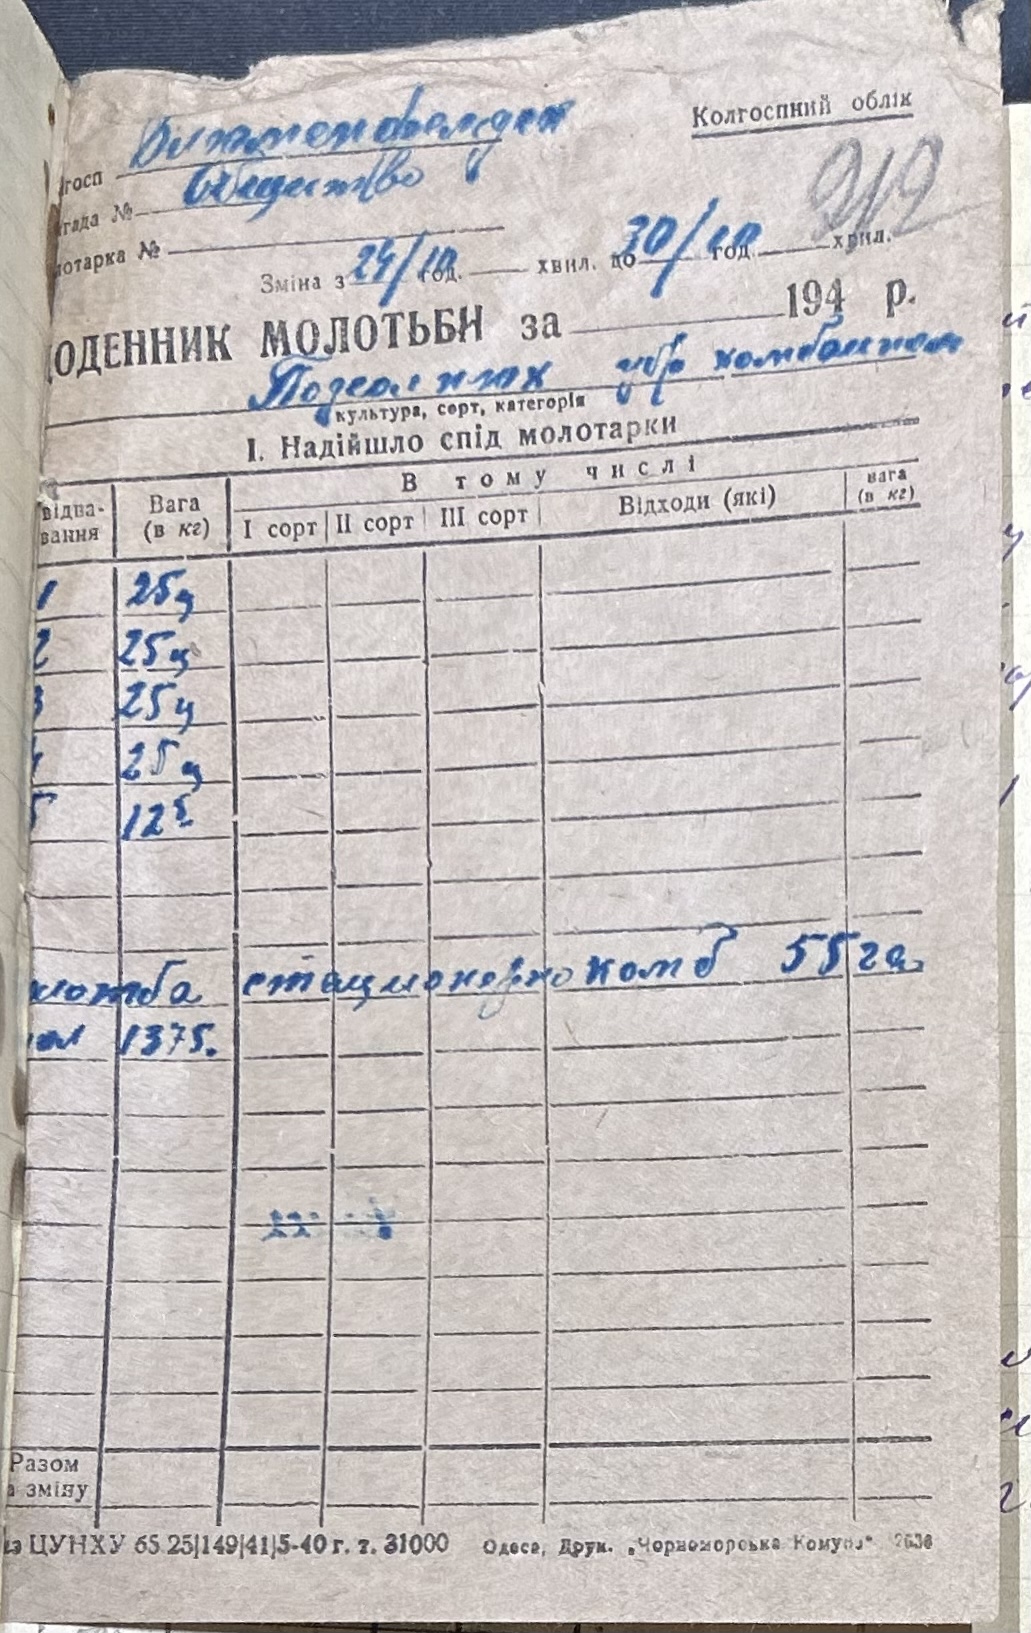 Колгоспний облік
госп
Общество
гада №
отарка №
212
Зміна з 24/10 год. хвил. до 30/10 год. хвил.
ОДЕННИК МОЛОТЬБИ за 194 р.
убр комбайном
культура, сорт, категорія
І. Надійшло спід молотарки
відва-вання Вага (в кг) В тому числі
І сорт ІІ сорт ІІІ сорт Відходи (які) вага (в кг)
1 25ц
2 25ц
3 25ц
25ц
5 12⁵
стационерно комб 55 га
1375.
Разом
а зміну
ЦУНХУ 65.25|149|41|5-40 г. т. 31000 Одеса, Друк. „Чорноморська Комуна“ 2636